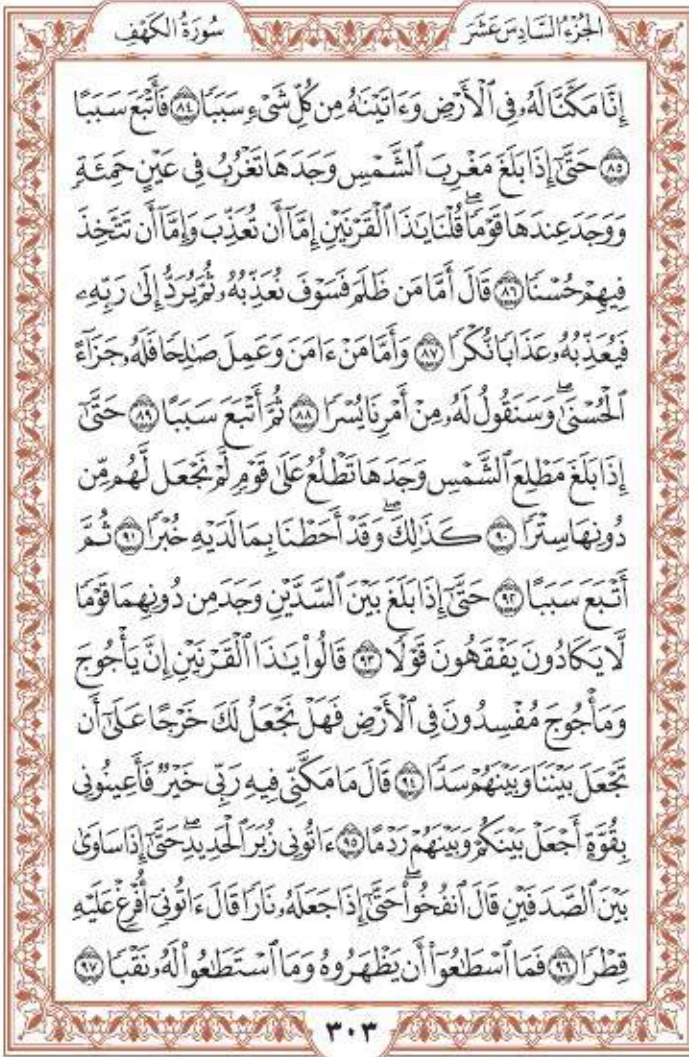 الجُزْءُ السَّادِسَ عَشَرَ
سُورَةُ الكَهْفِ
إِنَّا مَكَّنَّا لَهُۥ فِي ٱلْأَرْضِ وَءَاتَيْنَٰهُ مِن كُلِّ شَىْءٍ سَبَبًا ۝٨٤ فَأَتْبَعَ سَبَبًا
۝٨٥ حَتَّىٰٓ إِذَا بَلَغَ مَغْرِبَ ٱلشَّمْسِ وَجَدَهَا تَغْرُبُ فِي عَيْنٍ حَمِئَةٍ
وَوَجَدَ عِندَهَا قَوْمًا ۖ قُلْنَا يَٰذَا ٱلْقَرْنَيْنِ إِمَّآ أَن تُعَذِّبَ وَإِمَّآ أَن تَتَّخِذَ
فِيهِمْ حُسْنًا ۝٨٦ قَالَ أَمَّا مَن ظَلَمَ فَسَوْفَ نُعَذِّبُهُۥ ثُمَّ يُرَدُّ إِلَىٰ رَبِّهِۦ
فَيُعَذِّبُهُۥ عَذَابًا نُّكْرًا ۝٨٧ وَأَمَّا مَنْ ءَامَنَ وَعَمِلَ صَٰلِحًا فَلَهُۥ جَزَآءً
ٱلْحُسْنَىٰ ۖ وَسَنَقُولُ لَهُۥ مِنْ أَمْرِنَا يُسْرًا ۝٨٨ ثُمَّ أَتْبَعَ سَبَبًا ۝٨٩ حَتَّىٰٓ
إِذَا بَلَغَ مَطْلِعَ ٱلشَّمْسِ وَجَدَهَا تَطْلُعُ عَلَىٰ قَوْمٍ لَّمْ نَجْعَل لَّهُم مِّن
دُونِهَا سِتْرًا ۝٩٠ كَذَٰلِكَ ۖ وَقَدْ أَحَطْنَا بِمَا لَدَيْهِ خُبْرًا ۝٩١ ثُمَّ
أَتْبَعَ سَبَبًا ۝٩٢ حَتَّىٰٓ إِذَا بَلَغَ بَيْنَ ٱلسَّدَّيْنِ وَجَدَ مِن دُونِهِمَا قَوْمًا
لَّا يَكَادُونَ يَفْقَهُونَ قَوْلًا ۝٩٣ قَالُوا۟ يَٰذَا ٱلْقَرْنَيْنِ إِنَّ يَأْجُوجَ
وَمَأْجُوجَ مُفْسِدُونَ فِي ٱلْأَرْضِ فَهَلْ نَجْعَلُ لَكَ خَرْجًا عَلَىٰٓ أَن
تَجْعَلَ بَيْنَنَا وَبَيْنَهُمْ سَدًّا ۝٩٤ قَالَ مَا مَكَّنِّي فِيهِ رَبِّي خَيْرٌ فَأَعِينُونِي
بِقُوَّةٍ أَجْعَلْ بَيْنَكُمْ وَبَيْنَهُمْ رَدْمًا ۝٩٥ ءَاتُونِي زُبَرَ ٱلْحَدِيدِ ۖ حَتَّىٰٓ إِذَا سَاوَىٰ
بَيْنَ ٱلصَّدَفَيْنِ قَالَ ٱنفُخُوا۟ ۖ حَتَّىٰٓ إِذَا جَعَلَهُۥ نَارًا قَالَ ءَاتُونِيٓ أُفْرِغْ عَلَيْهِ
قِطْرًا ۝٩٦ فَمَا ٱسْطَٰعُوٓا۟ أَن يَظْهَرُوهُ وَمَا ٱسْتَطَٰعُوا۟ لَهُۥ نَقْبًا ۝٩٧
٣٠٣